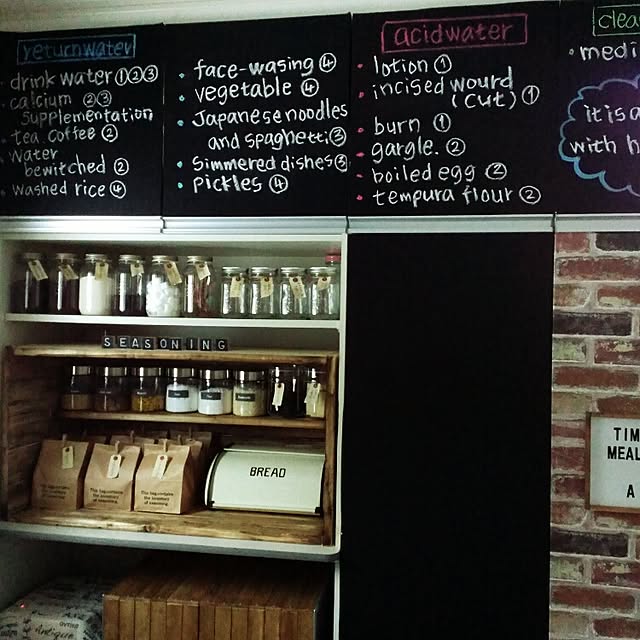 yeturnwater
drink water ①②③
calcium ②③
supplementation
tea coffee ②
water
bewitched ②
washed rice ④
face-wasing ④
vegetable ④
Japanese noodles
and spaghetti ③
simmered dishes ③
pickles ④
acidwater
lotion ①
incised wourd
(cut) ①
burn ①
gargle. ②
boiled egg ②
tempura flour ②
clea
medi
it is a
with h
SEASONING
BREAD
TIM
MEAL
A